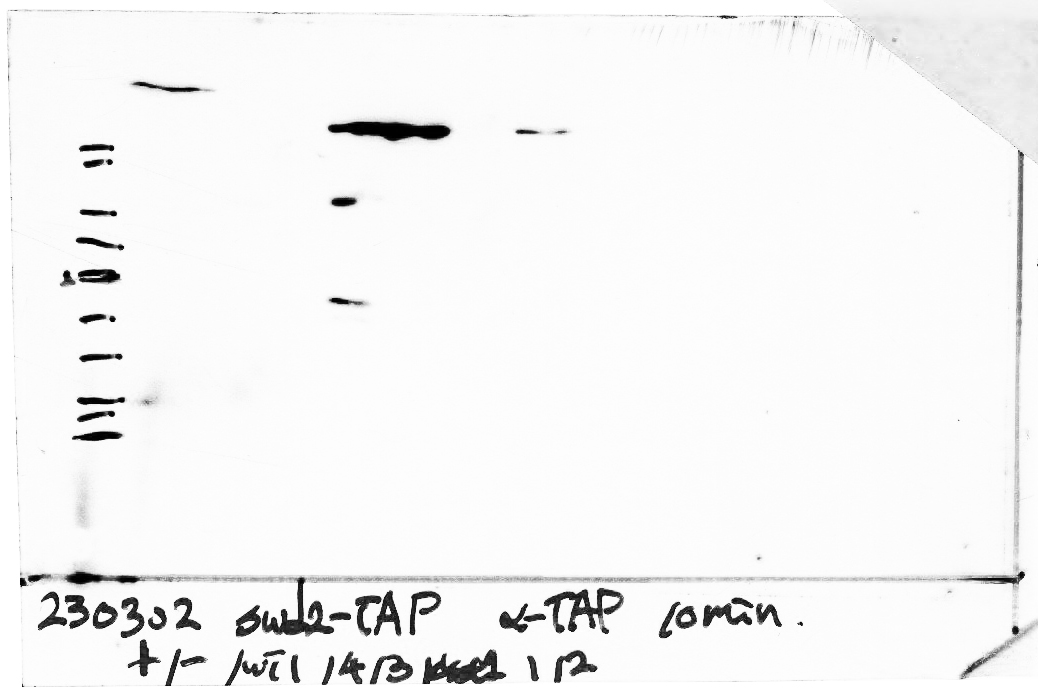 230302 swd2-TAP α-TAP 10min.
+/- /WT1 /4/3 1/2